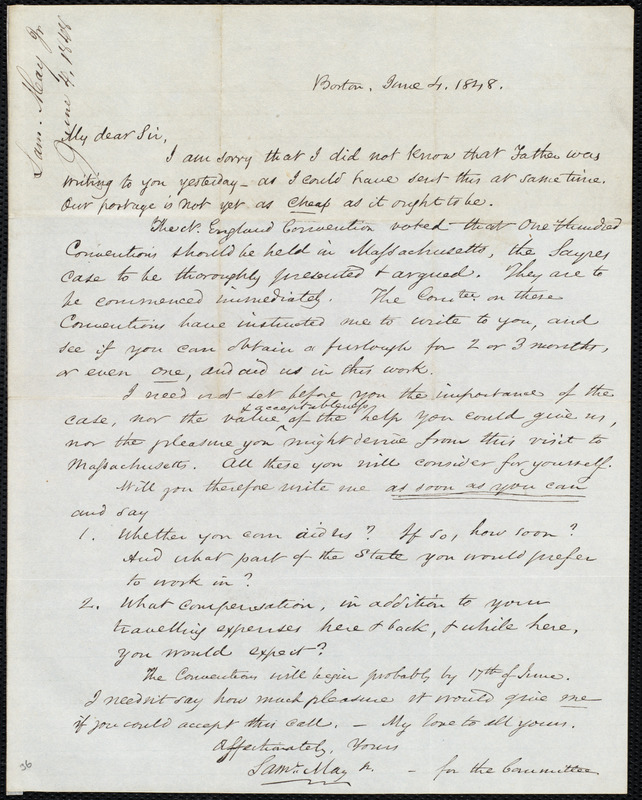 Sam: May Jr
June 4. 1848
Boston. June 4. 1848.
My dear Sir,
I am sorry that I did not know that Father was
writing to you yesterday - as I could have sent this at same time.
Our postage is not yet as cheap as it ought to be.
The N. England Convention voted that One Hundred
Conventions should be held in Massachusetts, the Sayres
case to be thoroughly presented & argued. They are to
be commenced immediately. The Comtee on these
Conventions have instructed me to write to you, and
see if you can obtain a furlough for 2 or 3 months,
or even one, and aid us in this work.
I need not set before you the importance of the
& acceptableness
case, nor the value ^ of the help you could give us,
nor the pleasure you might derive from this visit to
Massachusetts. All these you will consider for yourself.
Will you therefore write me as soon as you can
and say
1. Whether you can aid us? If so, how soon?
And what part of the State you would prefer
to work in?
2. What compensation, in addition to your
travelling expenses here & back, & while here,
you would expect?
The Conventions will begin probably by 17th of June.
I needn't say how much pleasure it would give me
if you could accept this call. - My love to all yours.
Affectionately, Yours
Saml. May Jr. - for the Committee
36